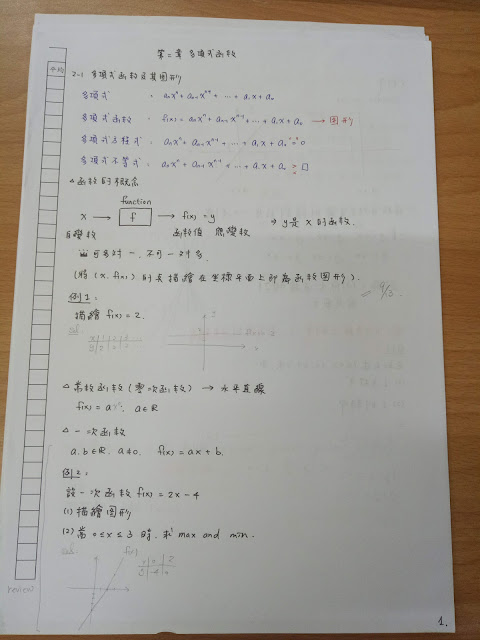 第二章 多項式函數
平均
2-1 多項式函數及其圖形
多項式 : aₙxⁿ + aₙ₋₁xⁿ⁻¹ + ... + a₁x + a₀
多項式函數 : f(x) = aₙxⁿ + aₙ₋₁xⁿ⁻¹ + ... + a₁x + a₀ → 圖形
多項式方程式 : aₙxⁿ + aₙ₋₁xⁿ⁻¹ + ... + a₁x + a₀ = 0
多項式不等式 : aₙxⁿ + aₙ₋₁xⁿ⁻¹ + ... + a₁x + a₀ > □
△ 函數的概念
function
x → f → f(x) = y ⇒ y是 x 的函數.
自變數 函數值 應變數
可多對一, 不可一對多.
(將 (x, f(x)) 的点描繪在坐標平面上即為函數圖形).
9/5
例1:
描繪 f(x) = 2.
sol
△ 常數函數 (零次函數) → 水平直線
f(x) = a, a∈R
△ 一次函數
a.b∈R. a≠0. f(x) = ax + b.
例2:
設一次函數 f(x) = 2x - 4
(1) 描繪圖形
(2) 當 0 ≤ x ≤ 3 時, 求 max and min.
sol
f(x)
review
1.